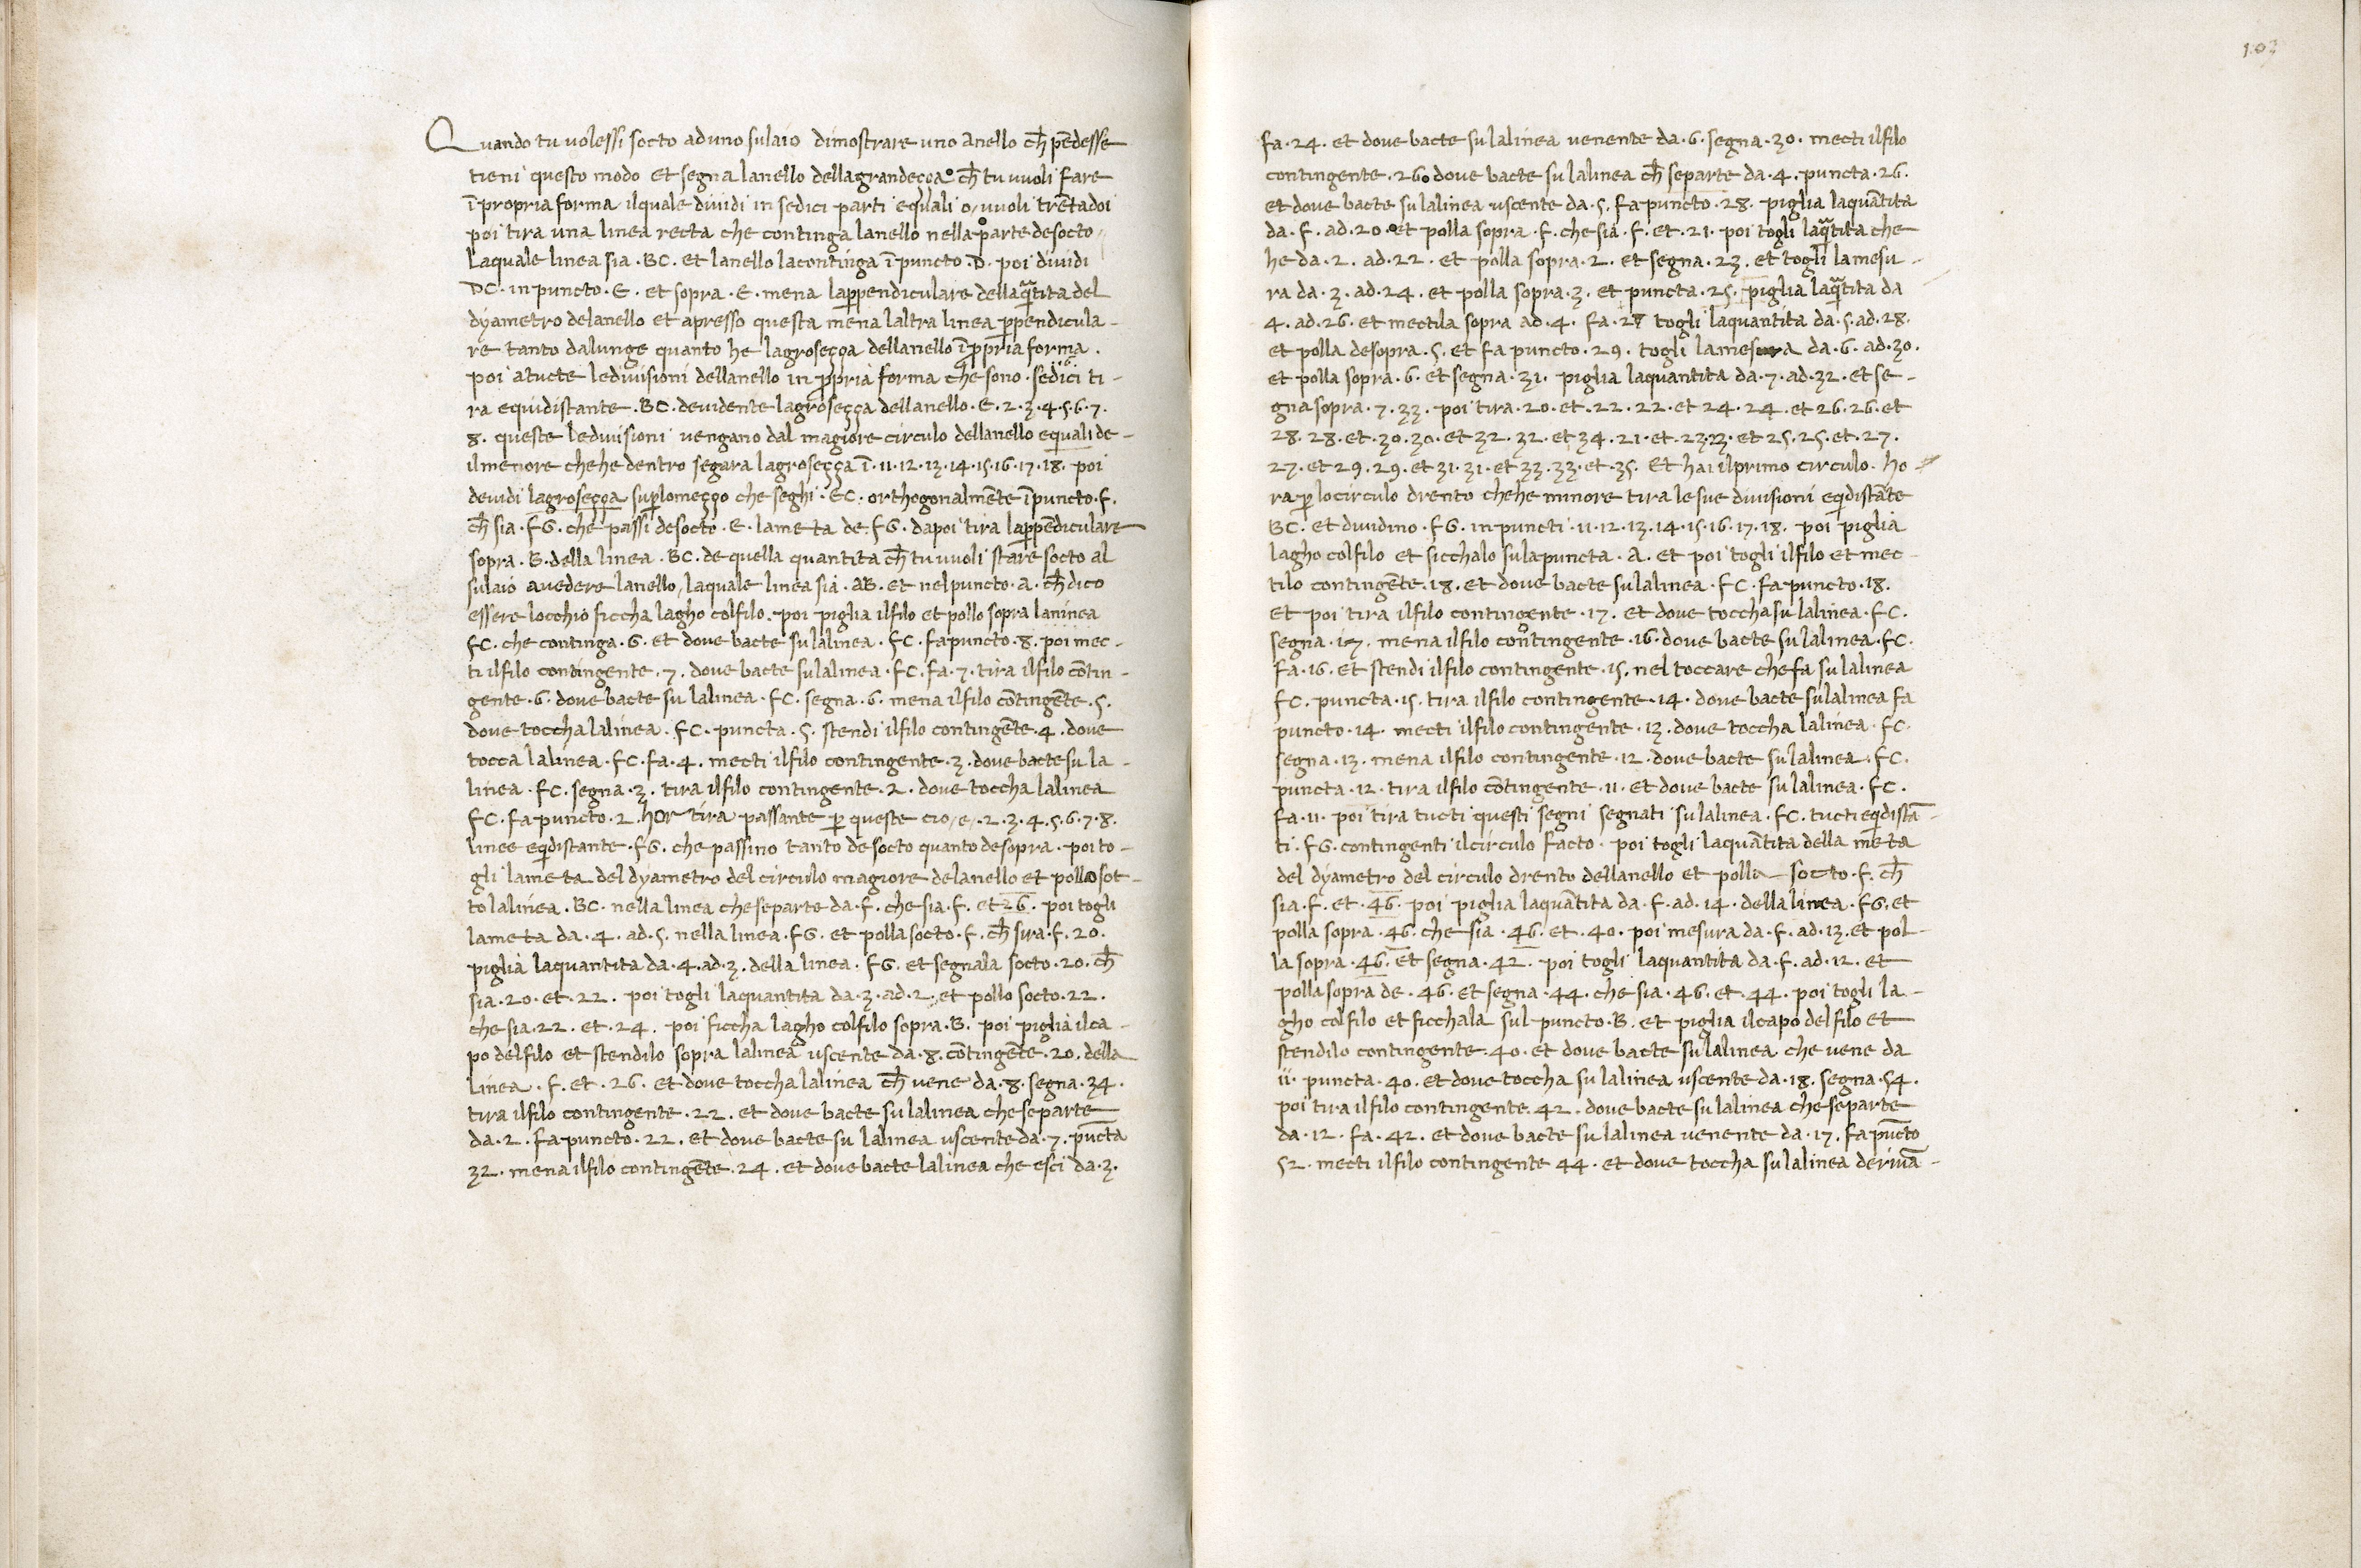 Quando tu volessi socto ad uno sulaio dimostrare uno anello ch̄ pēdesse
tieni questo modo et segna lanello della grandeçça ch̄ tu vuoli fare
ī propria forma il quale dividi in sedici parti equali o/ vuoli trētadoi
poi tira una linea recta che continga lanello nella parte desocto
Laquale linea sia ·BC· et lanello la continga ī puncto ·D· poi dividi
DC· in puncto ·E· et sopra ·E· mena lap̱pendiculare della q̄tita del
dyametro delanello et apresso questa mena laltra linea p̱pendicula-
re tanto dalunge quanto he la groseçça dellanello ī p̱pria forma·
poi atucte le divisioni dellanello in p̱pria forma che sono ·sedici ti-
ra equidistante ·BC· devidente la groseçça dellanello ·E·2·3·4·5·6·7·
8· queste le divisioni vengano dal magiore circulo dellanello equali de-
il menore che he dentro segara la groseçça ī ·11·12·13·14·15·16·17·18· poi
devidi la groseçça sup̱ lo meçço che seghi ·EC· orthogonalmēte ī puncto ·F·
ch̄ sia ·FG· che passi desocto ·E· la meta de ·FG· dapoi tira lap̱pēdiculare
sopra ·B· della linea ·BC· de quella quantita ch̄ tu vuoli stare socto al
sulaio a vedere lanello, la quale linea sia ·AB· et nel puncto ·A· ch̄ dico
essere lochio ficcha lagho col filo· poi piglia il filo et pollo sopra la ninea
FC· che continga ·G· et dove bacte su la linea ·FC· fa puncto ·8· poi mec-
ti il filo contingente ·7· dove bacte su la linea ·FC· fa ·7· tira il filo cōtin-
gente ·6· dove bacte su la linea ·FC· segna ·6· mena il filo cōtingēte ·5·
dove toccha la linea ·FC· puncta ·5· stendi il filo contingēte ·4· dove
tocca la linea ·FC· fa ·4· mecti il filo contingente ·3· dove bacte su la-
linea ·FC· segna ·3· tira il filo contingente ·2· dove toccha la linea
FC· fa puncto ·2· hor tira passante p̱ queste cio/e/ ·2·3·4·5·6·7·8·
linee eq̄distante ·FG· che passino tanto de socto quanto de sopra· poi to-
gli la meta del dyametro del circulo magiore delanello et pollo sot-
to la linea ·BC· nella linea che se parte da ·F· che sia ·F· et 26· poi togli
la meta da ·4· ad ·5· nella linea ·FG· et polla socto ·F· ch̄ sira ·F· 20·
piglia la quantita da ·4· ad ·3· della linea ·FG· et segnala socto ·20· ch̄
sia ·20· et ·22· poi togli la quantita da ·3· ad ·2· et pollo socto ·22·
che sia ·22· et ·24· poi ficcha lagho col filo sopra ·B· poi piglia il ca-
po del filo et stendilo sopra la linea uscente da ·8· cōtingēte ·20· della
linea ·F· et ·26· et dove toccha la linea ch̄ vene da ·8· segna ·34·
tira il filo contingente ·22· et dove bacte su la linea che se parte
da ·2· fa puncto ·22· et dove bacte su la linea uscente da ·7· pūcta
32· mena il filo contingēte ·24· et dove bacte la linea che esci da ·3·
103
fa ·24· et dove bacte su la linea venente da ·6· segna ·30· mecti il filo
contingente ·26· dove bacte su la linea ch̄ se parte da ·4· puncta ·26·
et dove bacte su la linea uscente da ·5· fa puncto ·28· piglia la quātita
da ·F· ad ·20· et polla sopra ·F· che sia ·F· et ·21· poi togli la q̄tita che
he da ·2· ad ·22· et polla sopra ·2· et segna ·23· et togli la mesu-
ra da ·3· ad ·24· et polla sopra ·3· et puncta ·25· piglia la q̄tita da
4· ad ·26· et mectila sopra ad ·4· fa ·27 togli la quantita da ·5· ad ·28·
et polla desopra ·5· et fa puncto ·29· togli la mesura da ·6· ad ·30·
et polla sopra ·6· et segna ·31· piglia la quantita da ·7· ad ·32· et se-
gna sopra ·7·33· poi tira ·20· et ·22·22· et 24·24· et 26·26· et
28·28· et ·30·30· et 32·32· et 34·21· et ·23·23· et 25·25· et ·27·
27· et 29·29· et 31·31· et 33·33· et ·35· Et hai il primo circulo· ho-
ra p̱ lo circulo drento che he minore tira le sue divisioni eq̄distāte
BC· et dividino ·FG· in puncti ·11·12·13·14·15·16·17·18· poi piglia
lagho col filo et ficchalo su la puncta ·A· et poi togli il filo et mec-
tilo contingēte ·18· et dove bacte su la linea ·FC· fa puncto ·18·
et poi tira il filo contingente ·17· et dove toccha su la linea ·FC·
segna ·17· mena il filo contingente ·16· dove bacte su la linea ·FC·
fa ·16· et stendi il filo contingente ·15· nel toccare che fa su la linea
FC· puncta ·15· tira il filo contingente ·14· dove bacte su la linea fa
puncto ·14· mecti il filo contingente ·13· dove toccha la linea ·FC·
segna ·13· mena il filo contingente ·12· dove bacte su la linea ·FC·
puncta ·12· tira il filo cōtingente ·11· et dove bacte su la linea ·FC·
fa ·11· poi tira tucti questi segni segnati su la linea ·FC· tucti eq̄distā-
ti ·FG· contingenti il circulo facto· poi togli la quātita della meta
del dyametro del circulo drento dellanello et polla socto ·F· ch̄
sia ·F· et ·46· poi piglia la quātita da ·F· ad ·14· della linea ·FG· et
polla sopra ·46· che sia ·46· et ·40· poi mesura da ·F· ad ·13· et pol-
la sopra ·46· et segna ·42· poi togli la quantita da ·F· ad ·12· et
polla sopra de ·46· et segna ·44· che sia ·46· et ·44· poi togli la-
gho col filo et ficchala sul puncto ·B· et piglia il capo del filo et
stendilo contingente ·40· et dove bacte su la linea che vene da
11· puncta ·40· et dove toccha su la linea uscente da ·18· segna ·54·
poi tira il filo contingente ·42· dove bacte su la linea che se parte
da ·12· fa ·42· et dove bacte su la linea venente da ·17· fa pūcto
52· mecti il filo contingente 44· et dove toccha su la linea derivā-